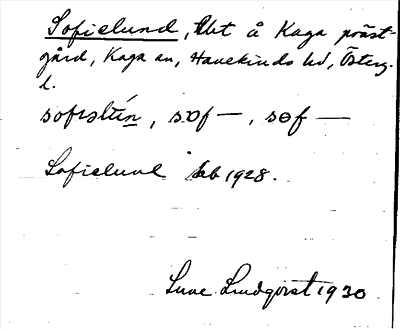 Sofielund, lht å Kaga präst-
gård, Kaga sn, Hanekinds hd, Österg.
l.
sofiəlɯ́n, sɒf —, səf —
Sofielund Jb 1928.
Sune Lindqvist 1930